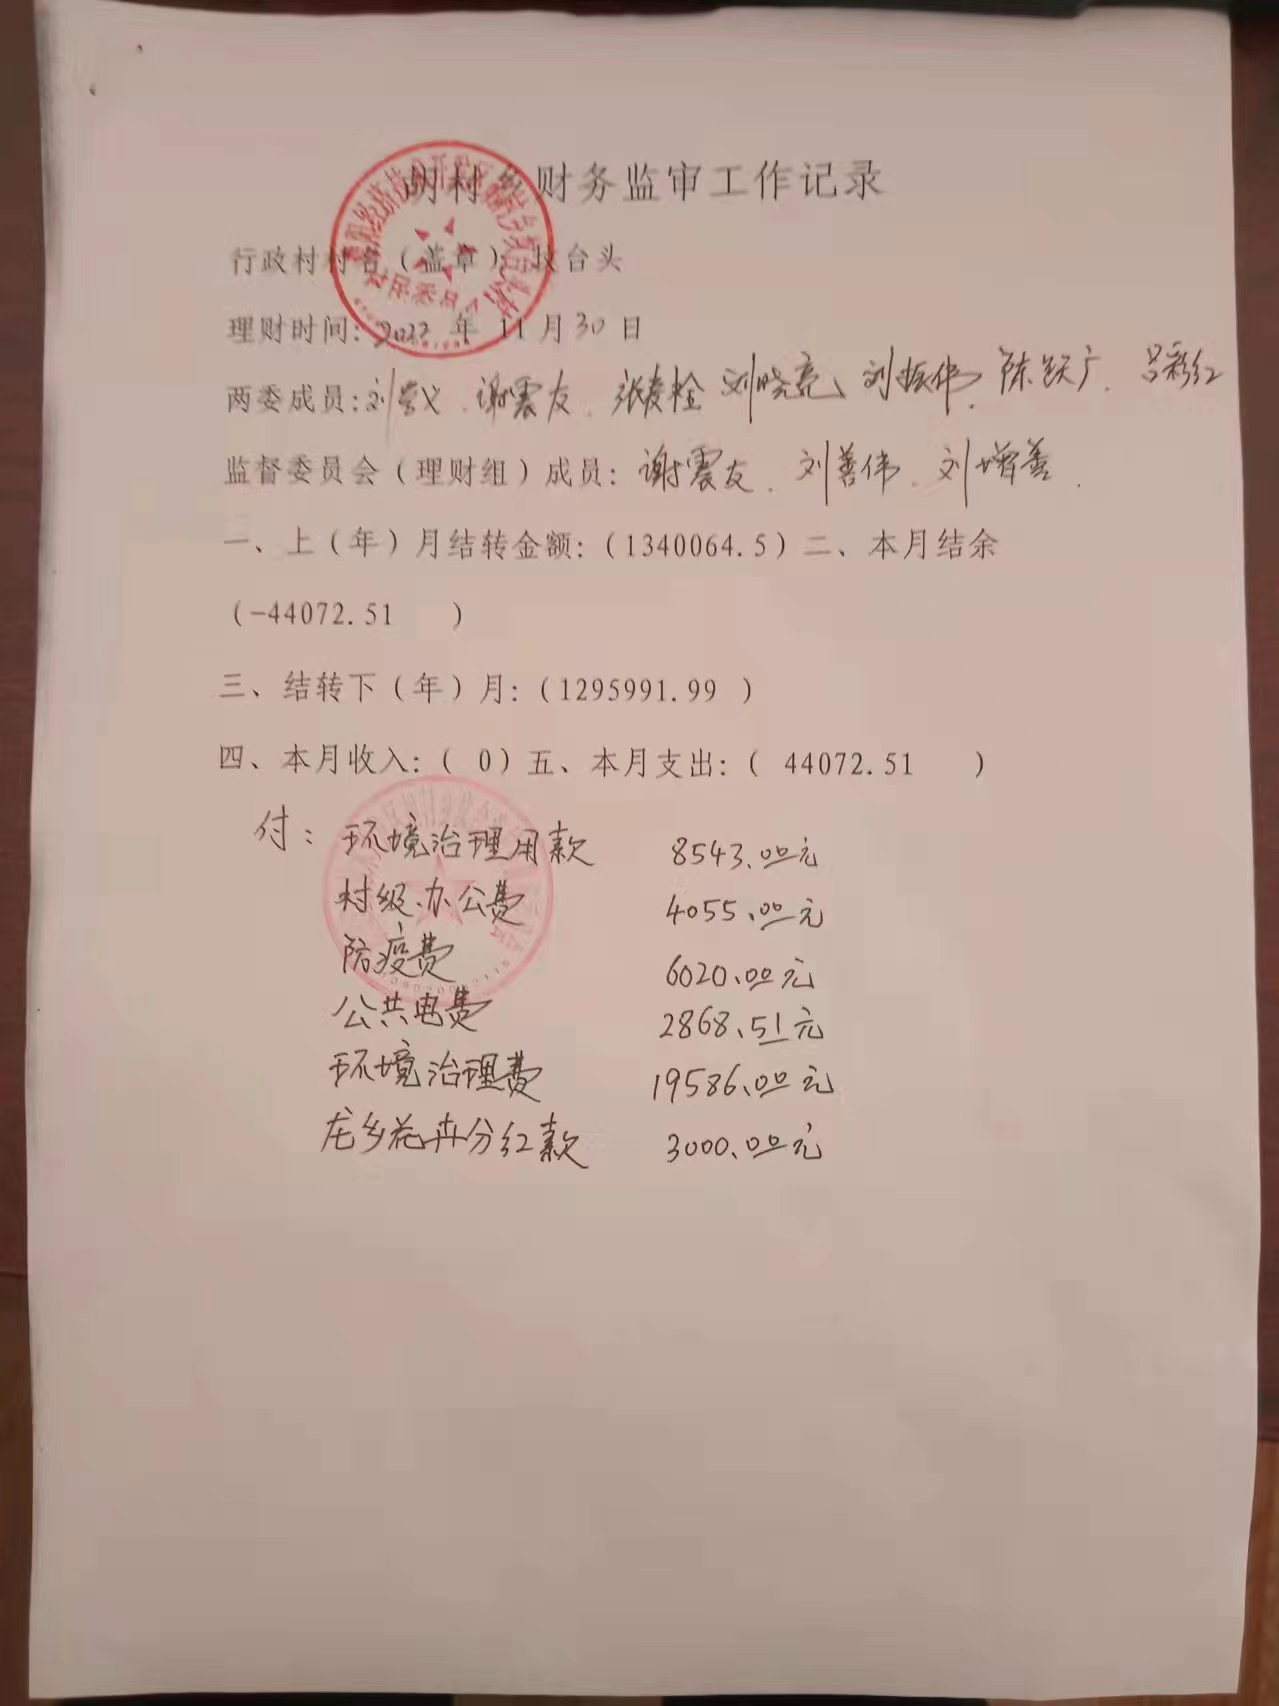 胡村乡财务监审工作记录
行政村村名（盖章）：收台头
理财时间：2022 年 11 月 30 日
两委成员：刘 谢震友、张 刘晓亮、刘振伟、陈跃广、吕彩红
监督委员会（理财组）成员：谢震友、刘善伟、刘增善、
一、上（年）月结转金额：（1340064.5）二、本月结余
（-44072.51 ）
三、结转下（年）月：（1295991.99 ）
四、本月收入：（ 0）五、本月支出：（ 44072.51 ）
付：环境治理用款 8543.00元
村级办公费 4055.00元
防疫费 6020.00元
公共电费 2868.51元
环境治理费 19586.00元
龙乡花卉分红款 3000.00元